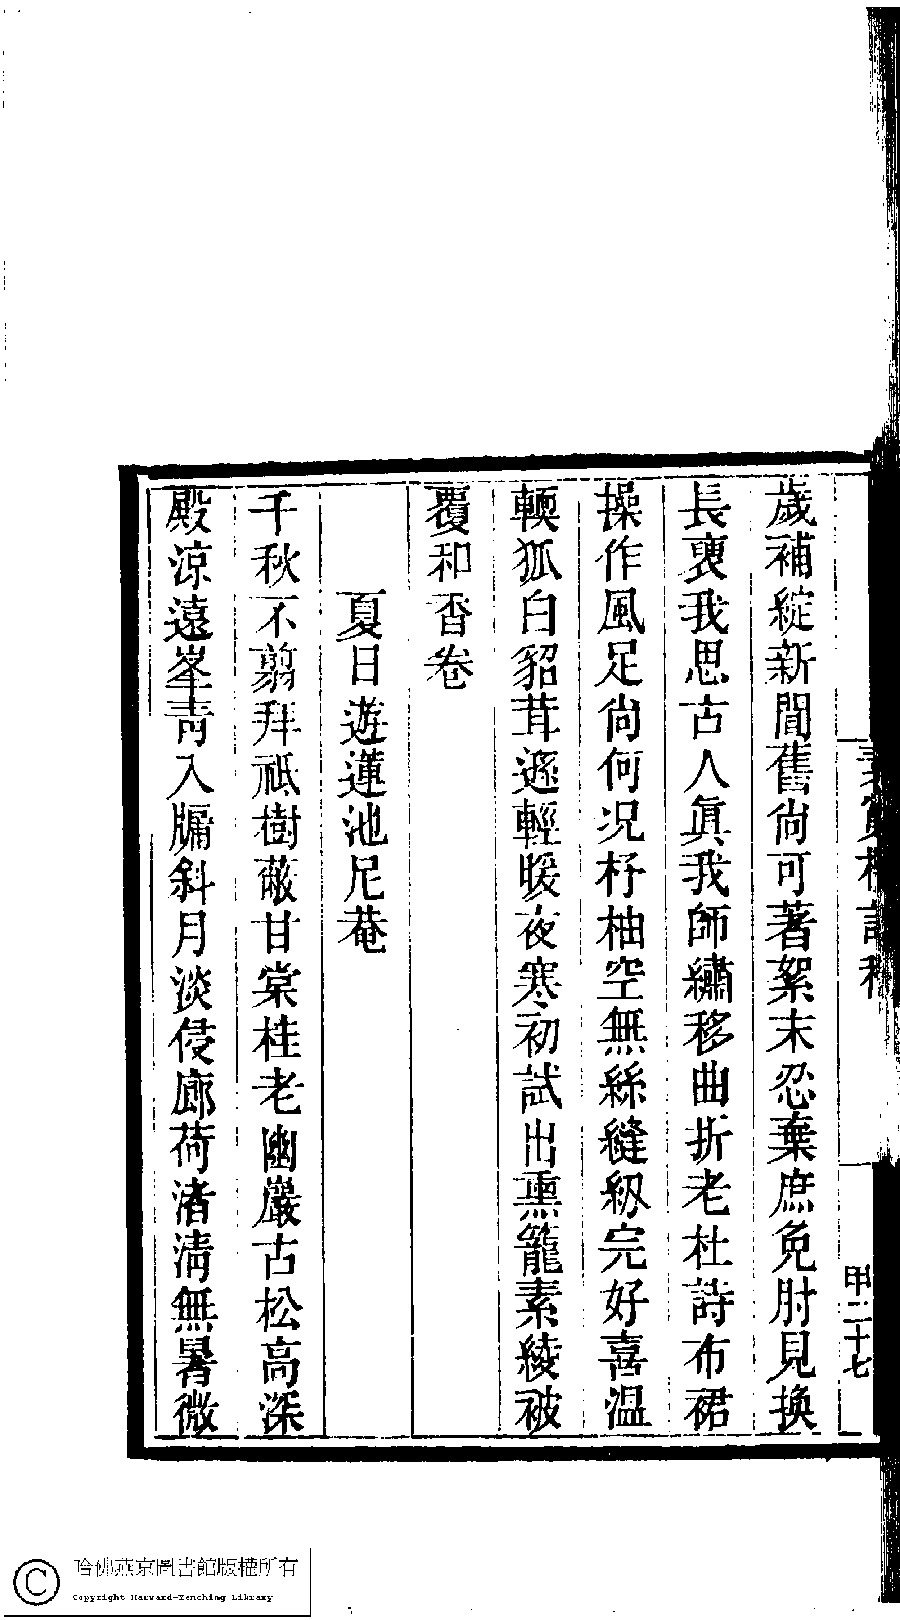 歲補綻新間舊尙可著絮未忍棄庶免肘見換
長裏我思古人眞我師繡移曲折老杜詩布裙
操作風足尙何況杼柚空無絲縫紉完好喜溫
輭狐白貂茸遜輕暖夜寒初試出熏籠素綾被
覆和香卷
夏日遊蓮池尼菴
千秋不翦拜祗樹蔽甘棠桂老幽巖古松高深
殿涼遠峯靑入牖斜月淡侵廊荷渚淸無暑微
甲二十七
哈佛燕京圖書館版權所有
Copyright Harvard-Yenching Library